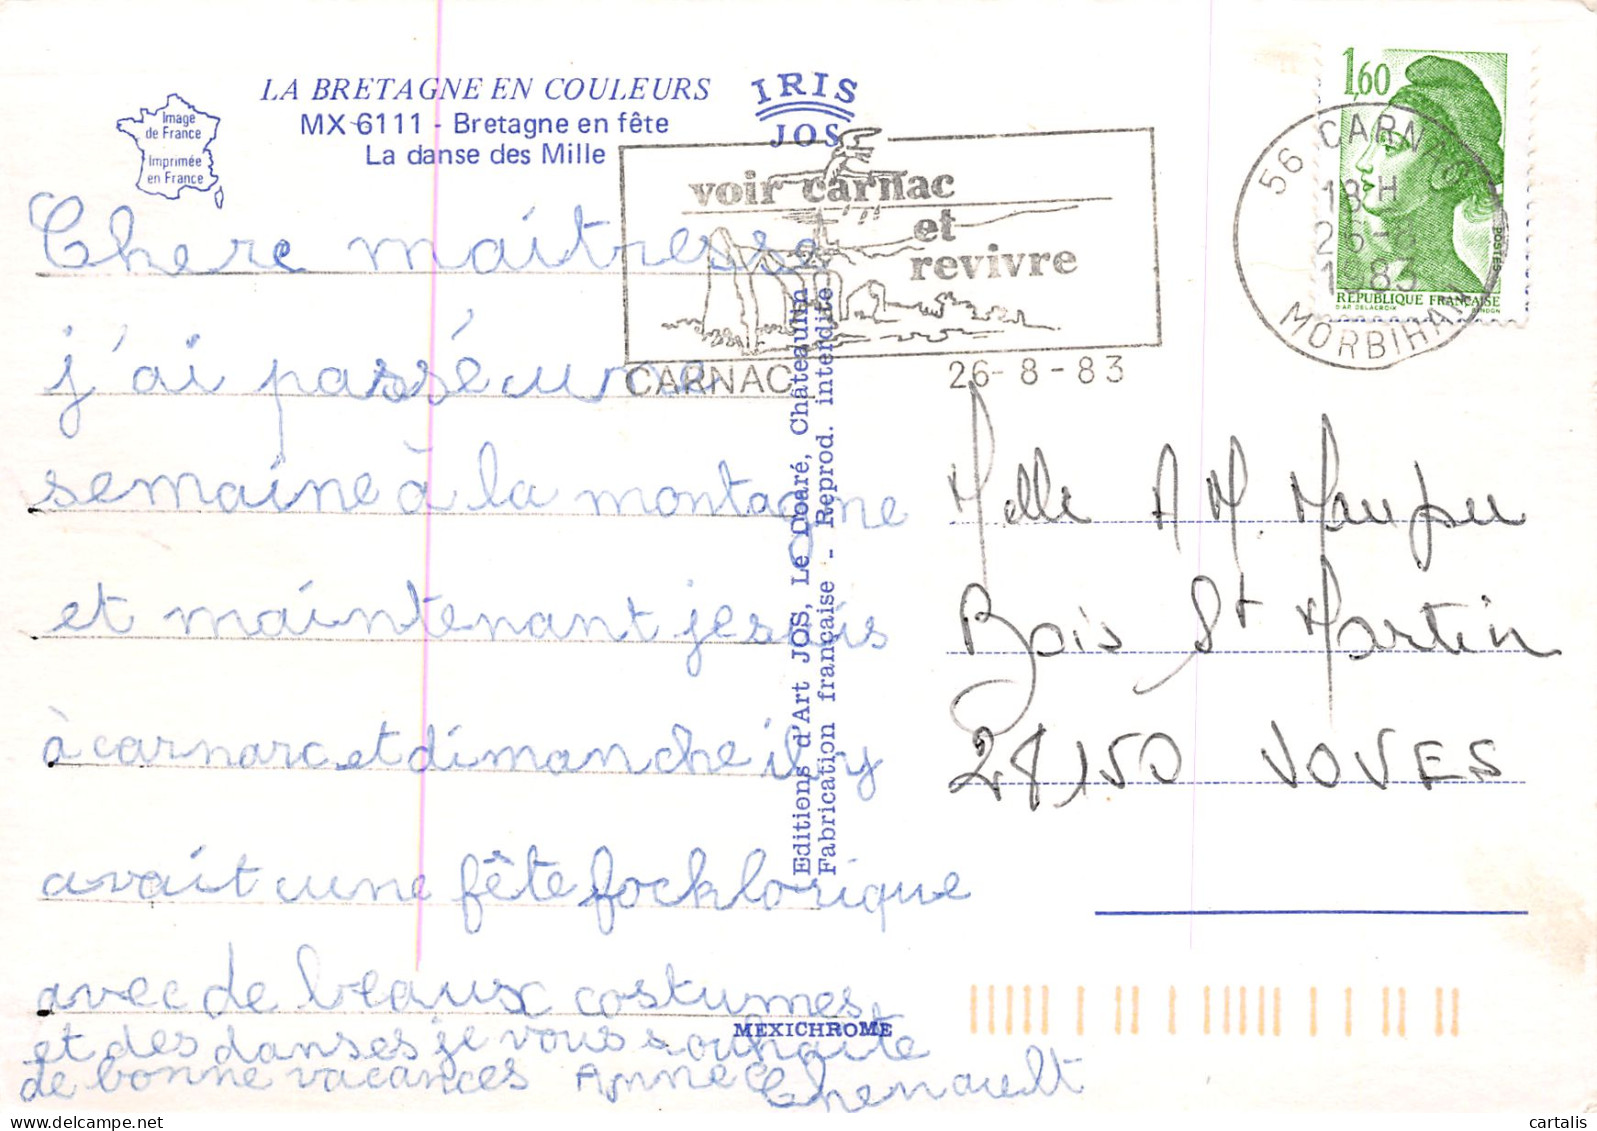 LA BRETAGNE EN COULEURS
MX-6111 - Bretagne en fête
La danse des Mille
Image
de France
Imprimée
en France
IRIS
JOS
voir carnac
et
revivre
CARNAC
26-8-83
56 CARNAC
18H
26-8
1983
MORBIHAN
1,60
POSTES
REPUBLIQUE FRANÇAISE
D'AP. DELACROIX
GANDON
Chere maitresse
j'ai passé une
semaine à la montagne
et maintenant je suis
à carnarc et dimanche il y
avait une fête focklorique
avec de beaux costumes
et des danses je vous souhaite
de bonne vacances Anne Chenault
Editions d'Art JOS, Le Doaré, Châteaulin
Fabrication française - Reprod. interdite
MEXICHROME
Melle A M. Maupu
Bois St Martin
28150 VOVES
cartalis